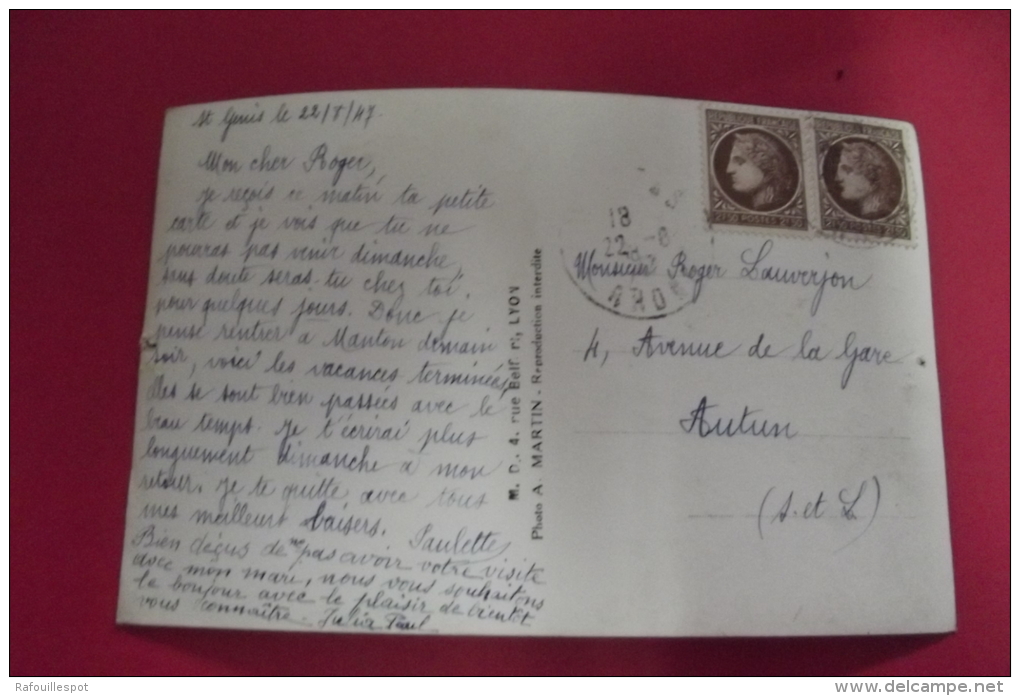 St Genis le 22/8/47.
Mon cher Roger,
je reçois ce matin ta petite
carte et je vois que tu ne
pourras pas venir dimanche
sans doute seras-tu chez toi,
pour quelques jours. Donc je
pense rentrer à demain
soir, voici les vacances terminées,
elles se sont bien passées avec le
beau temps. Je t'écrirai plus
longuement dimanche à mon
retour. Je te quitte avec tous
mes meilleurs baisers. Paulette
Bien déçus de ne pas avoir votre visite
avec mon mari, nous vous souhaitons
le bonjour avec le plaisir de bientôt
vous connaître. Julia Paul
M. D., 4, rue LYON
Photo A. MARTIN - Reproduction interdite
REPUBLIQUE FRANÇAISE
2F50 POSTES 2F50
REPUBLIQUE FRANÇAISE
2F50 POSTES 2F50
18
22 -8
RHONE
Monsieur Roger Lauverjon
4, Avenue de la Gare
Autun
(S. et L.)
Rafouillespot
www.delcampe.net